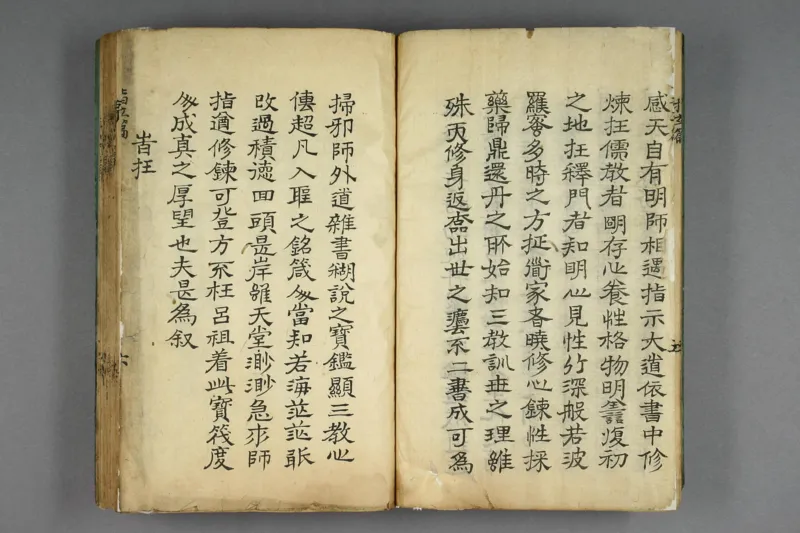 感天自有明師相遇指示大道依書中修
煉在儒教者明存心養性格物明善復初
之地在釋門者知明心見性行深般若波
羅蜜多時之方在衟家者曉修心鍊性採
藥歸鼎還丹之所始知三教訓世之理雖
殊而修身返本出世之憑不二書成可為
掃邪師外道雜書糊說之寶鑑顯三教心
傳超凡入聖之銘箴當知若海茫茫
改過積德回頭是岸雖天堂渺渺急求師
指道修鍊可登方不枉呂祖着此寶筏度
成真之厚望也夫是為叙